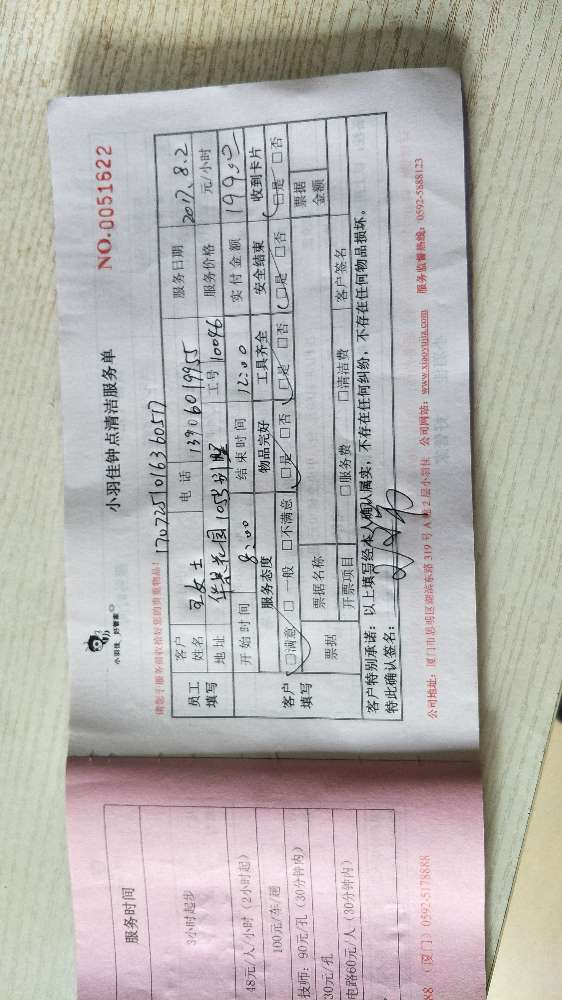 小羽佳 好管家
小羽佳钟点清洁服务单
NO.0051622
请您于服务前收拾好您的贵重物品!
1707251016360517
员工填写
客户姓名 女士 电话 13906019955 服务日期 2017.8.2
地址 华昊花园105别墅 工号 10096 服务价格 元/小时
开始时间 8:00 结束时间 12:00 实付金额 199.00
客户填写
服务态度 物品完好 工具齐全 安全结束 收到卡片
□满意 □一般 □不满意 □是 □否 □是 □否 □是 □否 □是 □否
票据 票据名称 票据金额
开票项目 □服务费 □清洁费 客户签名
客户特别承诺:以上填写经本人确认属实,不存在任何纠纷,不存在任何物品损坏。
特此确认签名:
公司地址:厦门市思明区湖滨东路319号A 2层小羽佳 公司网站:www.xiaoyujia.com 服务监督热线:0592-5888123
服务时间
3小时起步
48元/人/小时(2小时起)
100元/车/趟
技师:90元/孔(30分钟内)
30元/孔
电路60元/人(30分钟内)
88 (厦门)0592-5178888